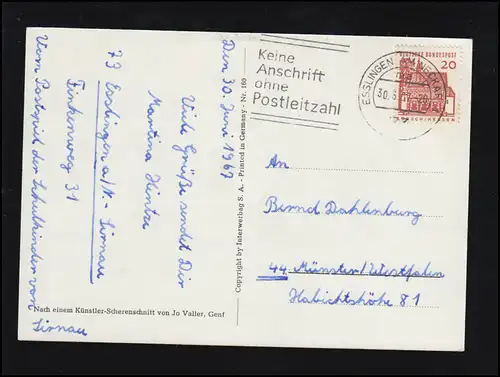 Den 30. Juni 1967
Viele Grüße sendet Dir
Martina Hintze
73 Esslingen a/N.- Sirnau
Finkenweg 31
Vom Postspiel der Schulkinder von
Sirnau
Nach einem Künstler-Scherenschnitt von Jo Valler, Genf
Copyright by Interwerbag S. A. - Printed in Germany - Nr. 180
Keine
Anschrift
ohne
Postleitzahl
ESSLINGEN AM NECKAR
DEUTSCHE BUNDESPOST
20
An
Bernd Dahlenburg
44 Münster/Westfalen
Habichtshöhe 81